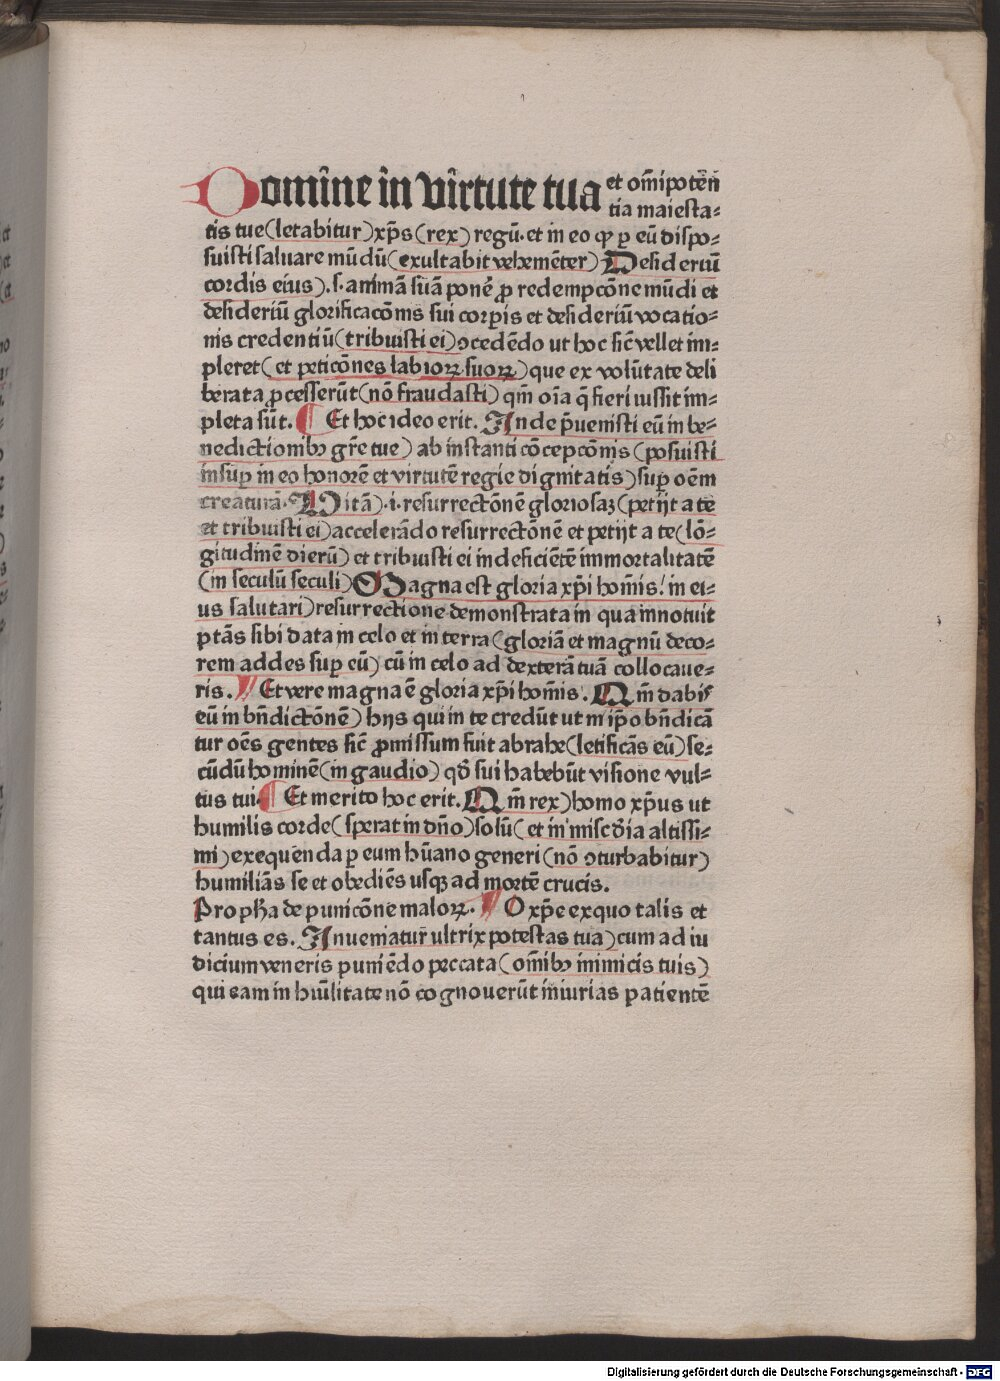 Domine in virtute tua et om̄ipotēn
tia maiesta⸗
tis tue (letabitur) xp̄s (rex) regū. et in eo qꝫ ꝑ eū dispo⸗
suisti saluare mūdū (exultabit vehemēter) Desideriū
cordis eius). s. animā suā ponē ꝓ redempcōne mūdi et
desideriū glorificacōnis sui corꝑis et desideriū vocatio⸗
nis credentiū (tribuisti ei) ꝯcedēdo ut hoc sic̄ vellet im⸗
pleret (et peticōnes labioꝝ suoꝝ) que ex volūtate deli
berata ꝓcesserūt (nō fraudasti) qm̄ oīa q̄ fieri iussit im⸗
pleta sūt. ¶ Et hoc ideo erit. Inde p̄uenisti eū in be⸗
nedictionibꝫ gr̄e tue) ab instanti cōcepcōnis (posuisti
insuꝑ in eo honorē et virtutē regie dignitatis) suꝑ oēm
creaturā. Vitā) .i. resurrectōnē gloriosaꝫ (petijt a te
et tribuisti ei) accelerādo resurrectōnē et petijt a te (lō⸗
gitudinē dierū) et tribuisti ei indeficiētē immortalitatē
(in seculū seculi) Magna est gloria xp̄i hoīnis. in ei⸗
us salutari) resurrectione demonstrata in qua innotuit
ptās sibi data in celo et in terra (gloriā et magnū deco⸗
rem addes suꝑ eū) cū in celo ad dexterā tuā collocaue⸗
ris. ¶ Et vere magna ē gloria xp̄i hoīnis. Qm̄ dabis
eū in bn̄dictōnē) hijs qui in te credūt ut in ip̄o bn̄dicā
tur oēs gentes sic̄ ꝓmissum fuit abrahe (letificās eū) se⸗
cūdū hominē (in gaudio) qd̄ sui habebūt visione vul⸗
tus tui. ¶ Et merito hoc erit. Qm̄ rex) homo xp̄us ut
humilis corde (sperat in dn̄o) solū (et in misc̄dia altissi⸗
mi) exequenda ꝑ eum hūano generi (nō ꝯturbabitur)
humiliās se et obediēs usqꝫ ad mortē crucis.
Propħa de punicōne maloꝝ. ¶ O xp̄e exquo talis et
tantus es. Inueniatur̄ ultrix potestas tua) cum ad iu
dicium veneris puniēdo peccata (om̄ibꝫ inimicis tuis)
qui eam in hūilitate nō cognouerūt iniurias patientē
Digitalisierung gefördert durch die Deutsche Forschungsgemeinschaft - DFG